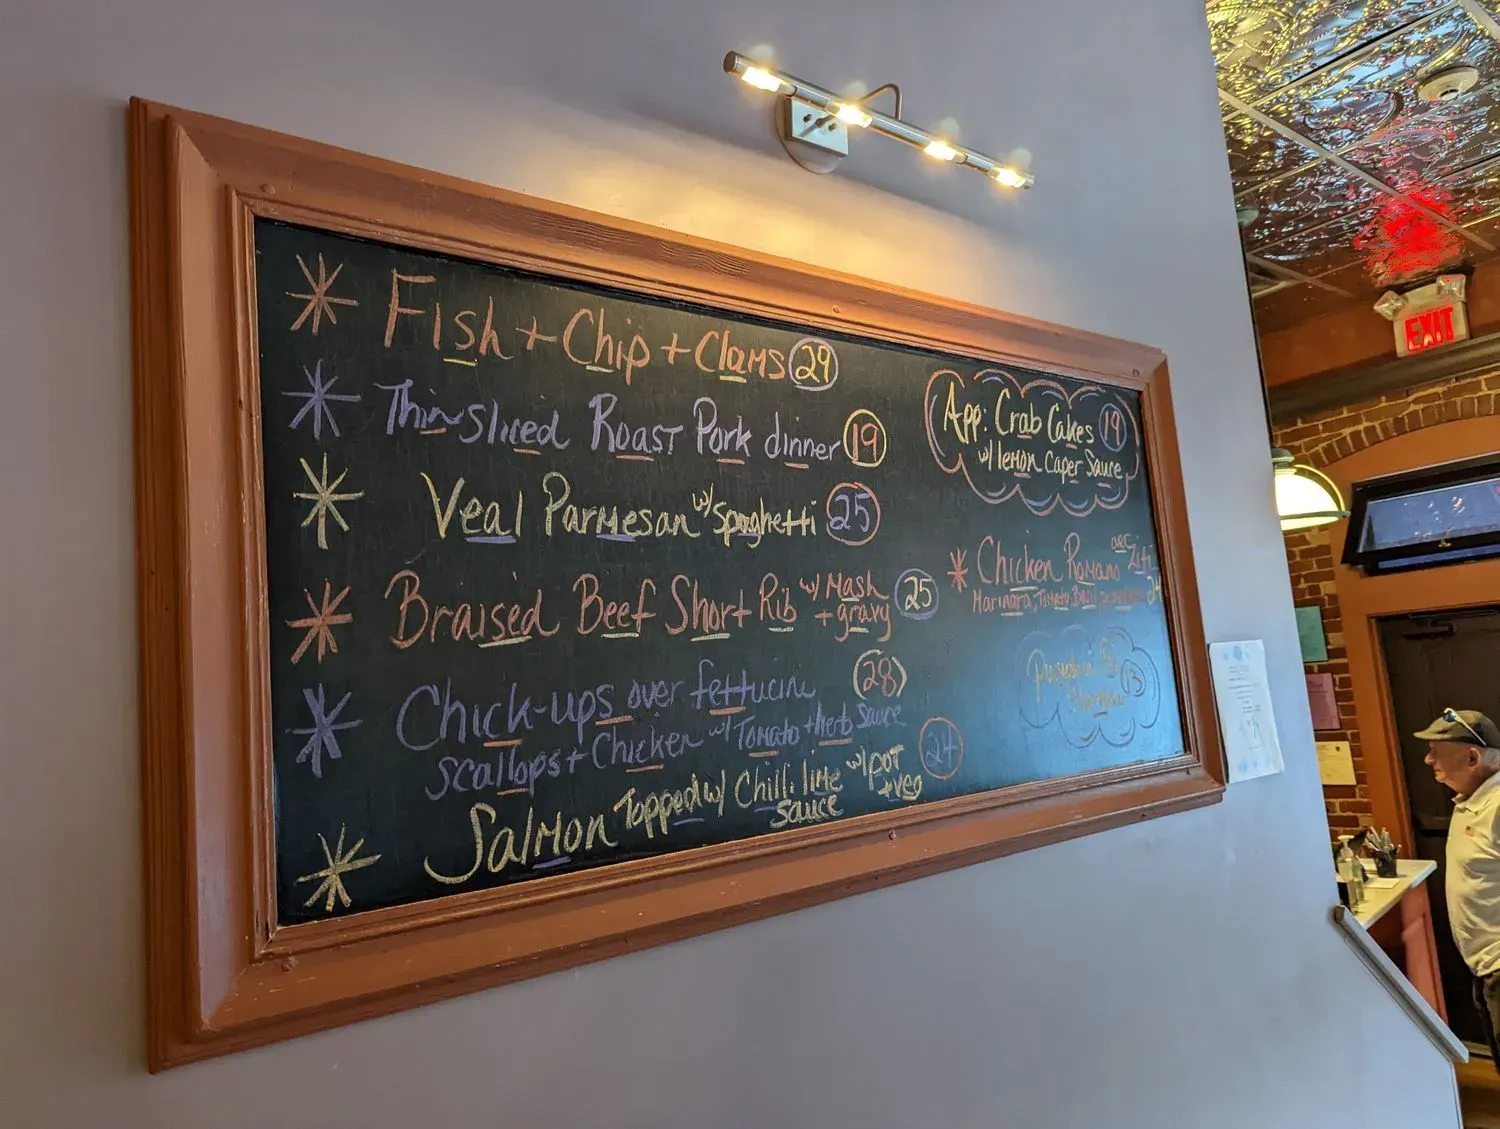 Fish + Chip + Clams 29
Thin sliced Roast Pork dinner 19
Veal Parmesan w/ spaghetti 25
Braised Beef Short Rib w/ Mash + gravy 25
Chick-ups over fettucine 28
scallops + Chicken w/ Tomato + herb sauce
Salmon Topped w/ Chili lime sauce w/ pot + veg 24
App: Crab Cakes 19
w/ lemon Caper Sauce
Chicken Romano over Ziti
Marinara, Tomato, Basil
13
EXIT